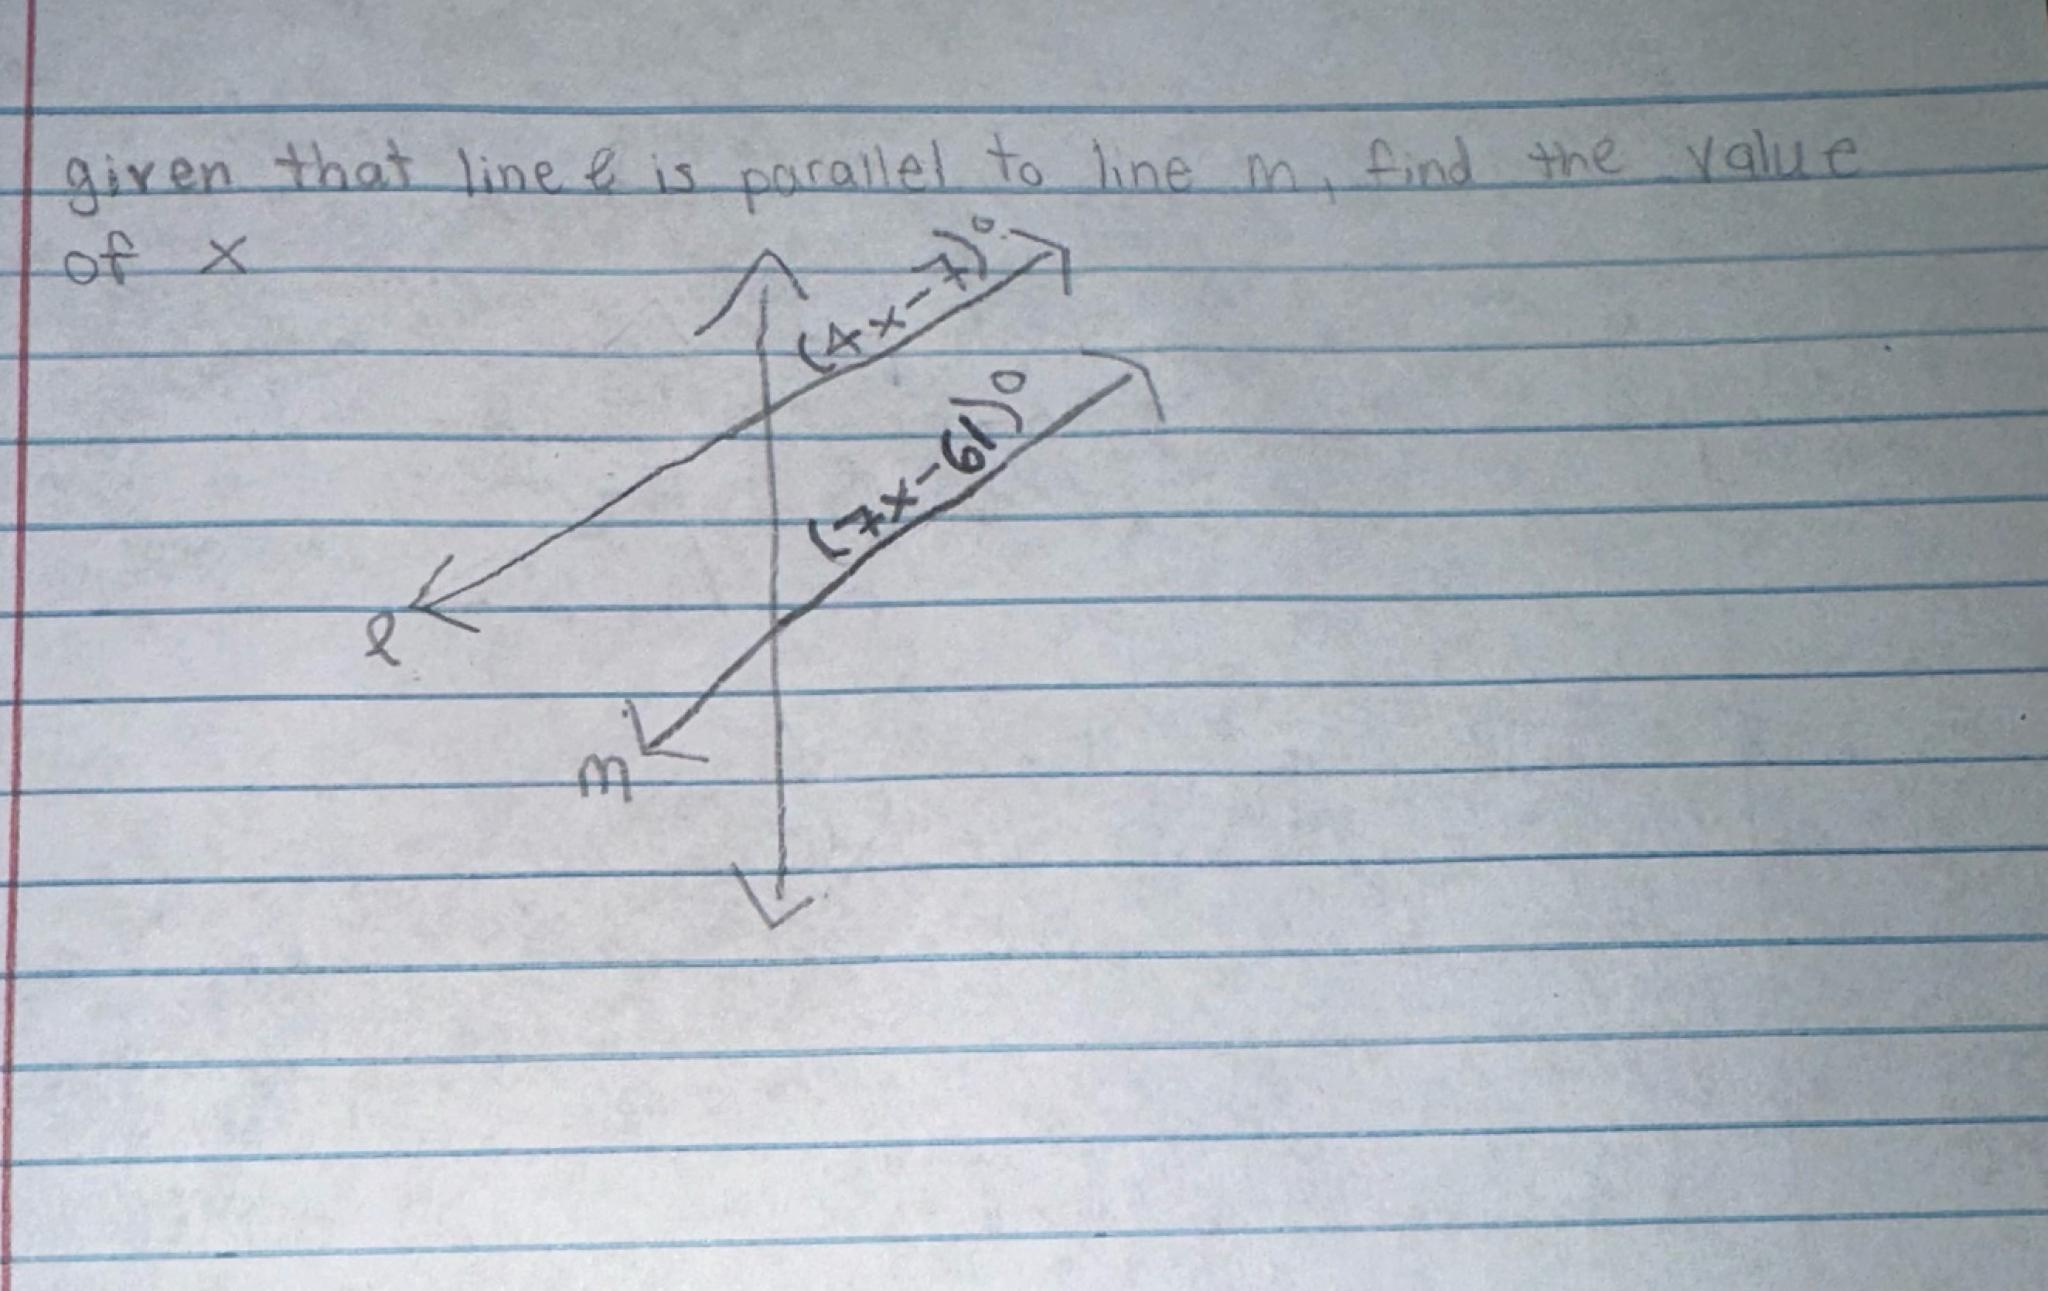 given that line ℓ is parallel to line m, find the value
of x
(4x-7)°
(7x-61)°
ℓ
m